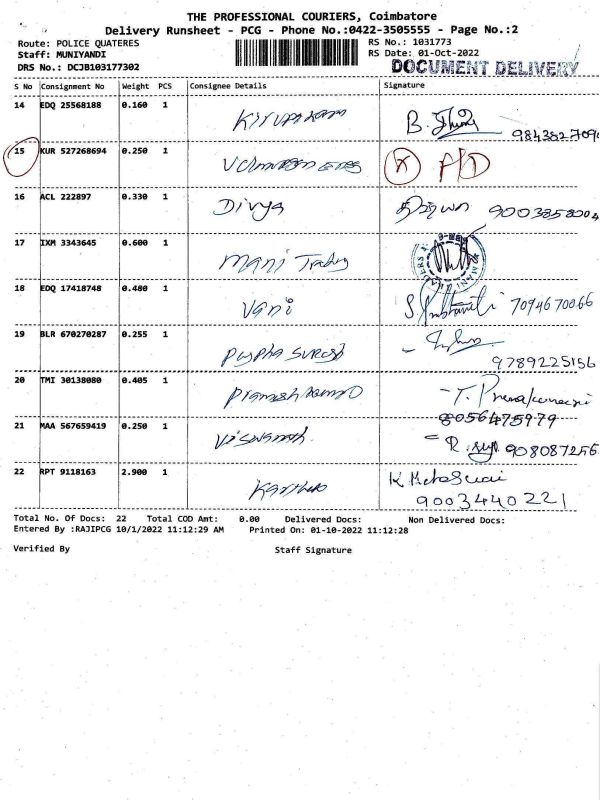 THE PROFESSIONAL COURIERS, Coimbatore
Delivery Runsheet - PCG - Phone No.:0422-3505555 - Page No.:2
Route: POLICE QUATERES RS No.: 1031773
Staff: MUNIYANDI RS Date: 01-Oct-2022
DRS No.: DCJB103177302 DOCUMENT DELIVERY
S No Consignment No Weight PCS Consignee Details Signature
14 EDQ 25568188 0.160 1 B.
15 KUR 527268694 0.250 1
16 ACL 222897 0.330 1 Divya திவ்யா 9003858004
17 IXM 3343645 0.600 1 Mani MANI
18 EDQ 17418748 0.480 1 Vani S. 7094670066
19 BLR 670270287 0.255 1 Pushpa Suresh
9789225156
20 TMI 30138080 0.405 1 T.
8056475979
21 MAA 567659419 0.250 1 Viswanath R. 908087256
22 RPT 9118163 2.900 1 K
9003440221
Total No. Of Docs: 22 Total COD Amt: 0.00 Delivered Docs: Non Delivered Docs:
Entered By :RAJIPCG 10/1/2022 11:12:29 AM Printed On: 01-10-2022 11:12:28
Verified By Staff Signature